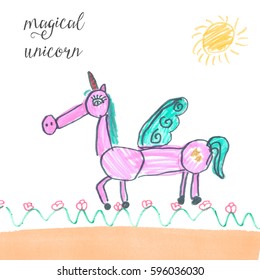 magical
unicorn
shutterstock.com · 596036030